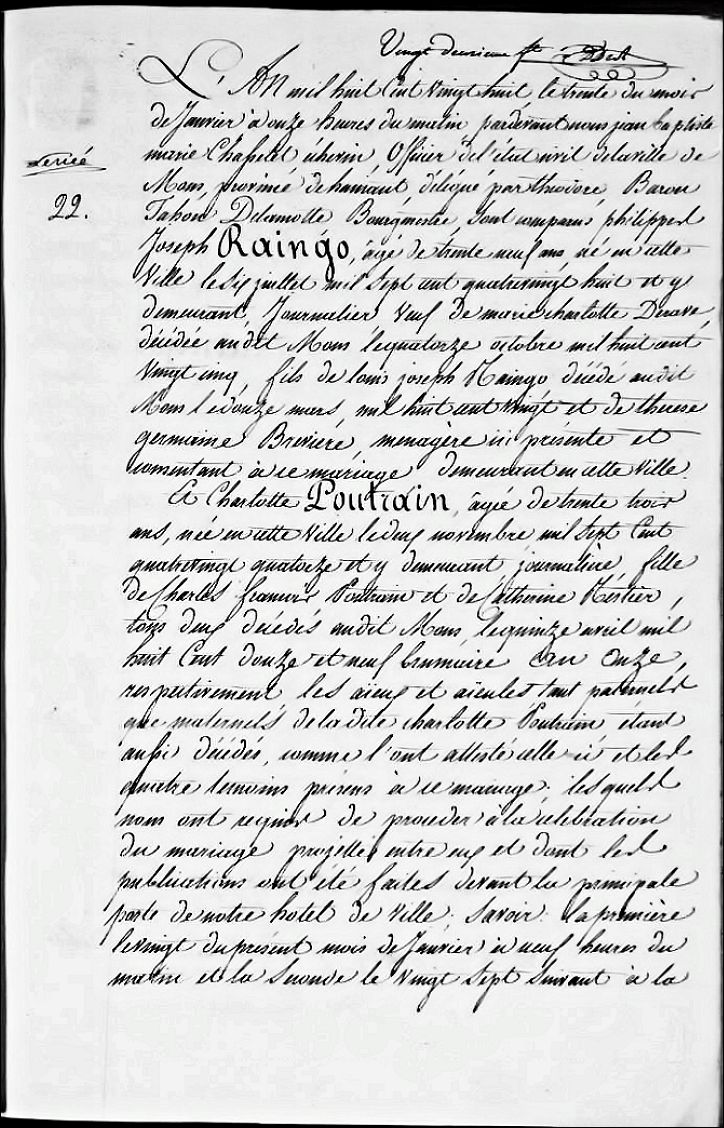 Vingt deuxieme ft
L'An mil huit Cent vingt huit le trente du mois
de Janvier à onze heures du matin pardevant nous jean baptiste
marie Chapelet échevin Officier de l'état civil de la ville de
Mons, province de hainaut délégué par théodore Baron
Tahon Delamotte Bourgmestre, Sont comparus philippe
22.
Joseph Raingo, âgé de trente neuf ans né en cette
Ville le six juillet mil Sept cent quatrevingt huit et y
demeurant, Journalier Veuf de marie charlotte
décédée audit Mons le quatorze octobre mil huit cent
Vingt cinq, fils de louis joseph Raingo décédé audit
Mons le douze mars, mil huit cent vingt et de therese
germaine Breviere, menagère ici présente et
consentant à ce mariage demeurant en cette Ville.
Et Charlotte Poutrain, âgée de trente trois
ans, née en cette Ville le deux novembre mil Sept Cent
quatrevingt quatorze et y demeurant journalière, fille
De Charles françois Poutrain et de Catherine Mestier,
tous deux décédés audit Mons, le quinze avril mil
huit Cent douze et neuf brumaire an Onze,
respectivement les aïeux et aïeules tant paternels
que maternels de ladite charlotte Poutrain étant
aussi décédés, comme l'ont attesté celle-ci et les
quatre temoins présens à ce mariage; lesquels
nous ont requis de proceder à la celebration
du mariage projetté entre eux et dont les
publications ont été faites devant la principale
porte de notre hotel de Ville; Savoir: la première
le vingt du présent mois de Janvier à neuf heures du
matin et la Seconde le Vingt Sept Suivant à la